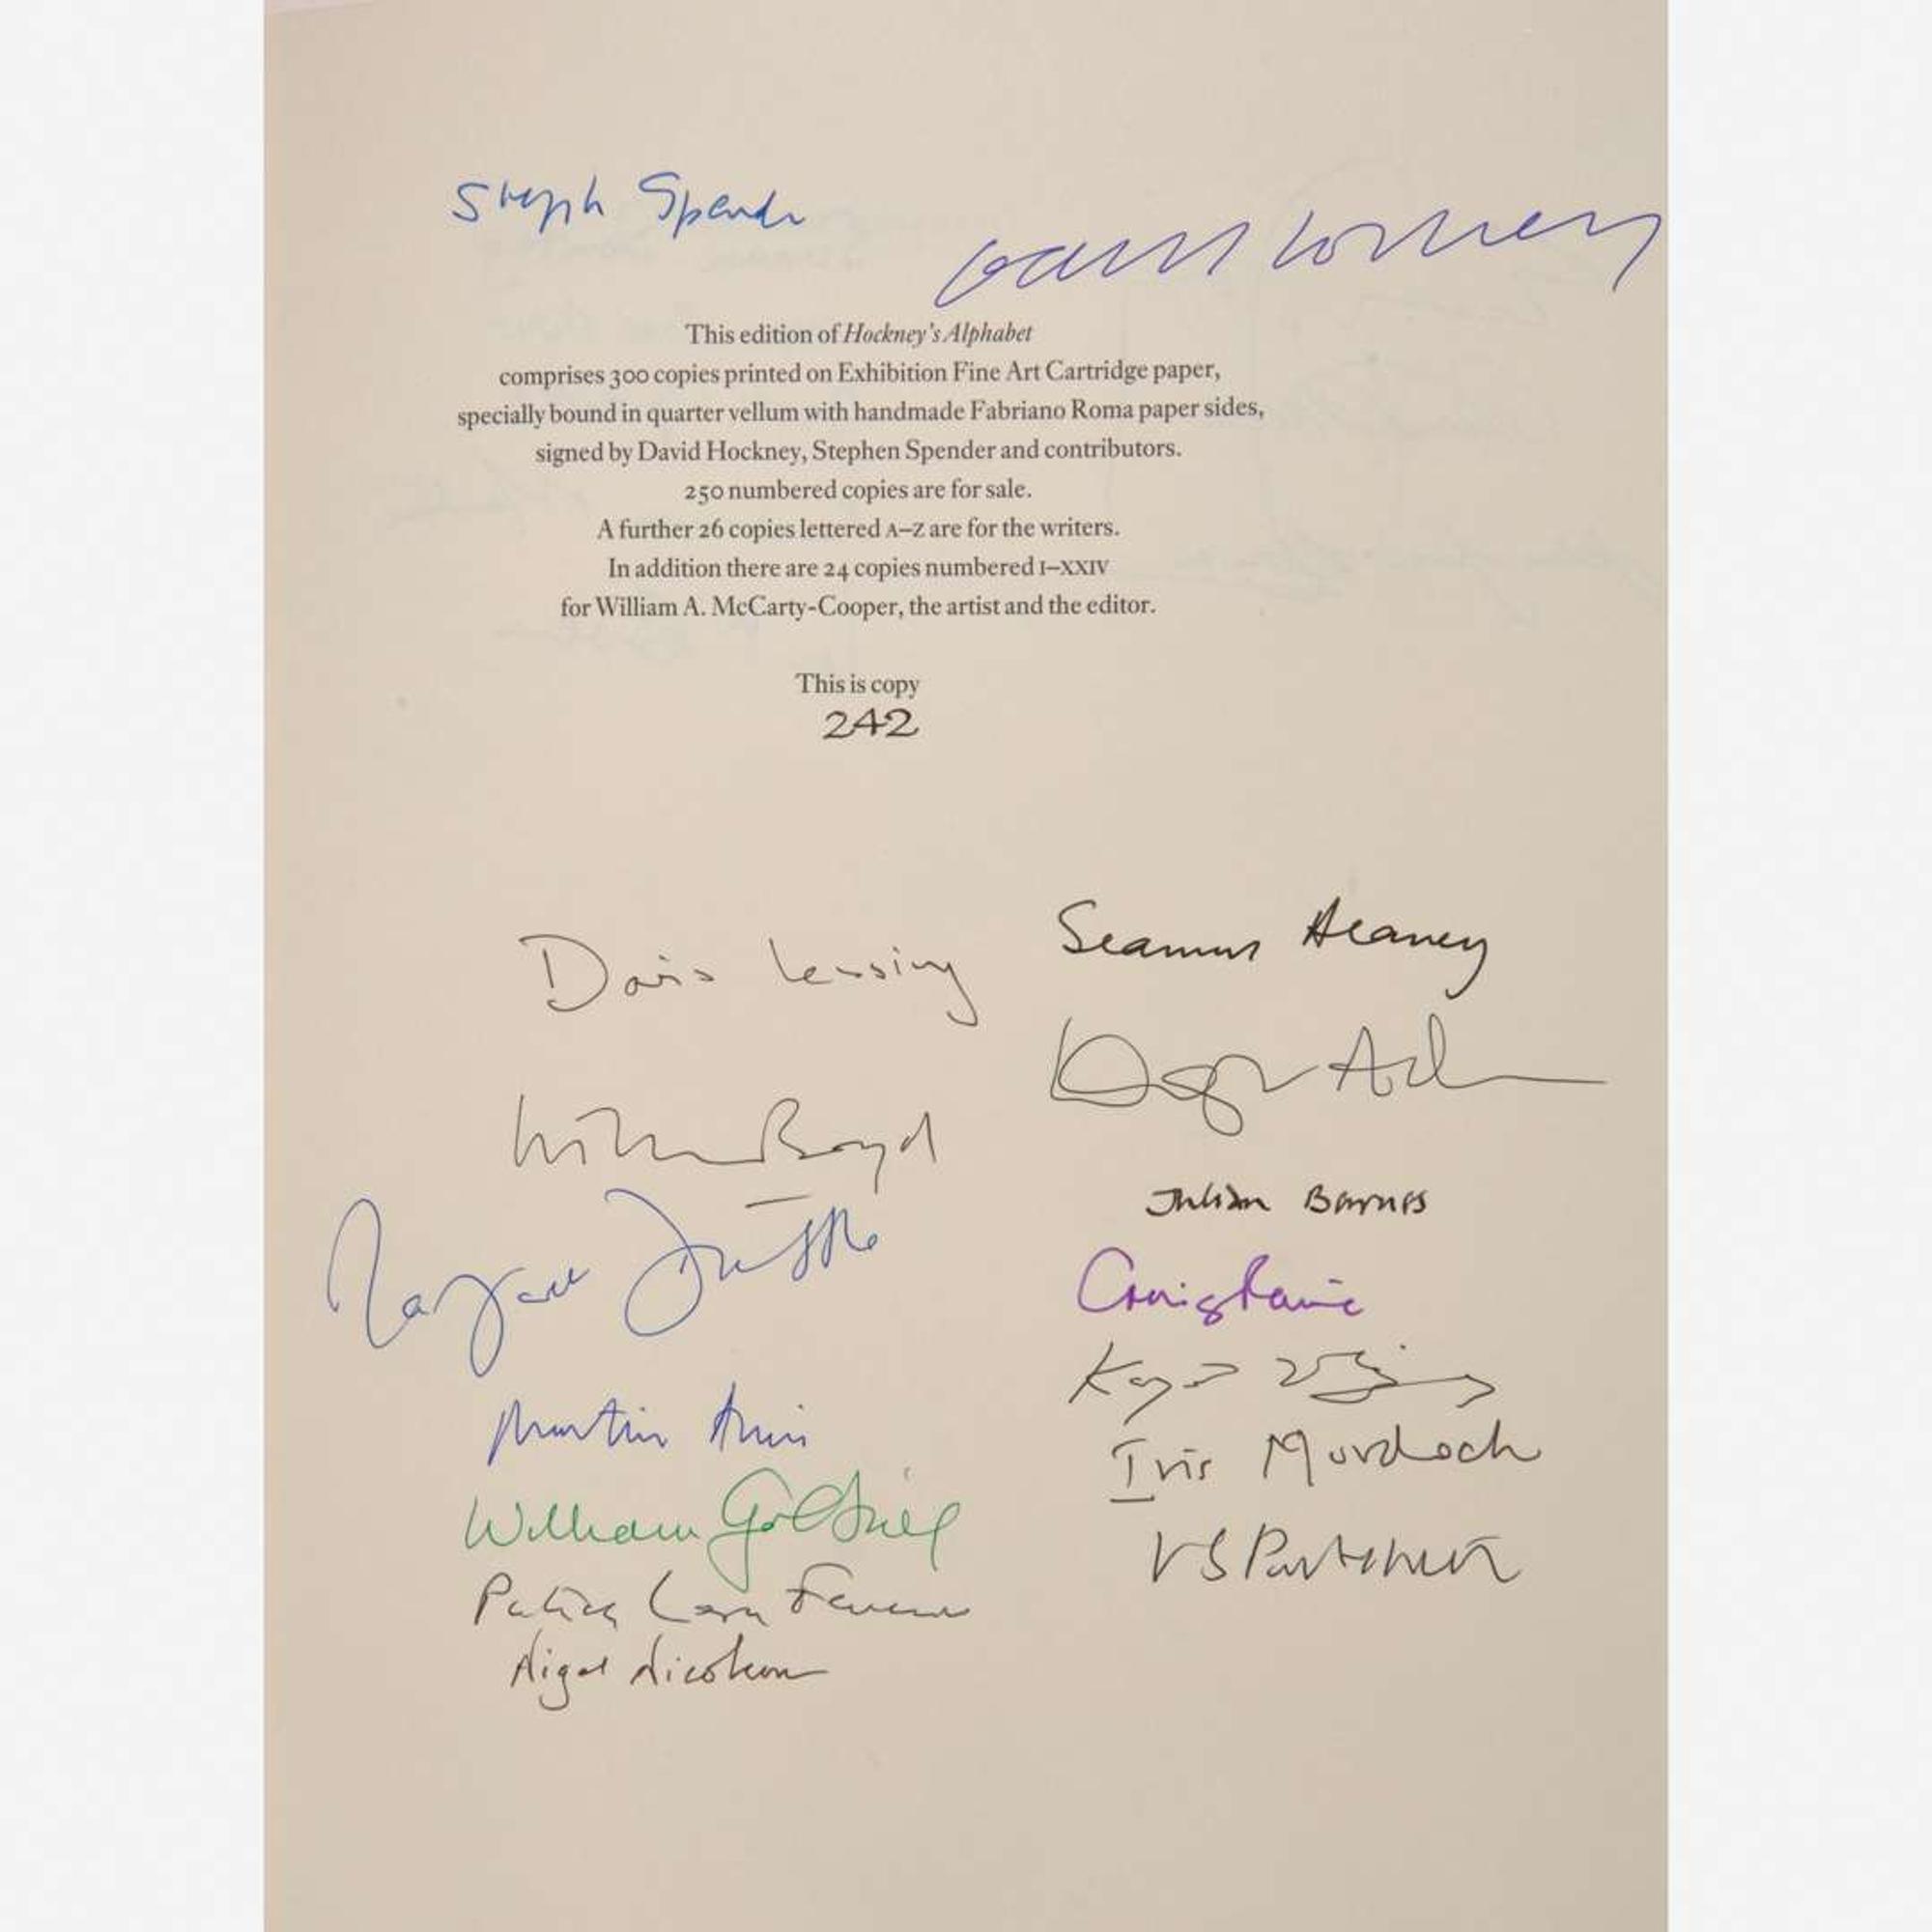 Stephen Spender
David Hockney
This edition of Hockney's Alphabet
comprises 300 copies printed on Exhibition Fine Art Cartridge paper,
specially bound in quarter vellum with handmade Fabriano Roma paper sides,
signed by David Hockney, Stephen Spender and contributors.
250 numbered copies are for sale.
A further 26 copies lettered A–Z are for the writers.
In addition there are 24 copies numbered I–XXIV
for William A. McCarty-Cooper, the artist and the editor.
This is copy
242
Doris Lessing
William Boyd
Margaret Drabble
Martin Amis
William Golding
Patrick Leigh Fermor
Nigel Nicolson
Seamus Heaney
Douglas Adams
Julian Barnes
Craig Raine
Kazuo Ishiguro
Iris Murdoch
V S Pritchett